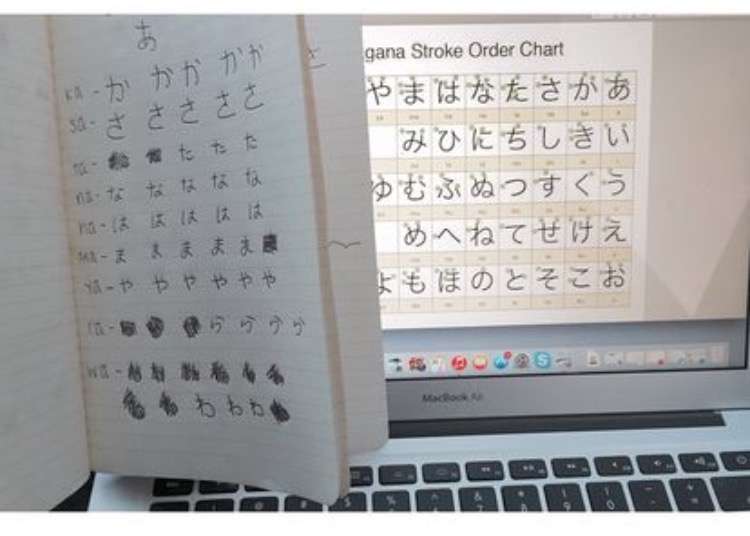 あ
ka - か か か か か
sa - さ さ さ さ さ
ta - た た た
na - な な な な な
ha - は は は は は
ma - ま ま ま ま ま
ya - や や や や や や
ra - ら ら ら ら
wa -
わ わ わ
gana Stroke Order Chart
や ま は な た さ か あ
み ひ に ち し き い
ゆ む ふ ぬ つ す く う
め へ ね て せ け え
よ も ほ の と そ こ お
MacBook Air